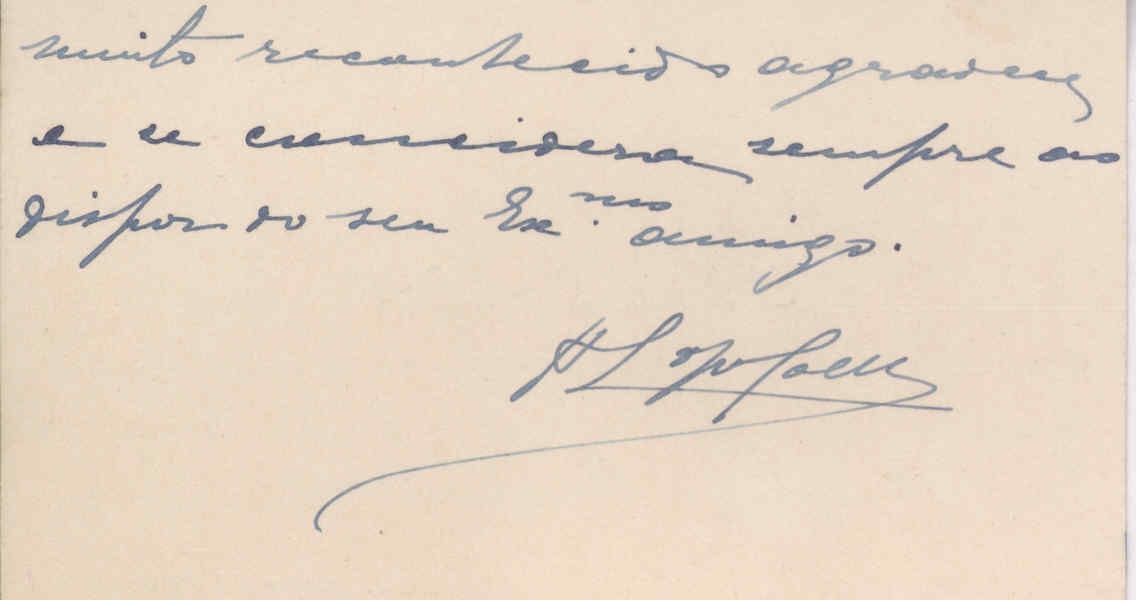 muito reconhecido agradece
e se considera sempre ao
dispor do seu Ex.mo amigo.